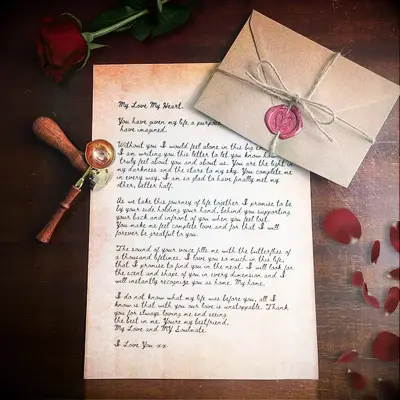 My Love My Heart.
You have given my life a purpose
have imagined.
Without you I would feel alone in this big em
I am writing you this letter to let you know ho
truly feel about you and about us. You are the light in
my darkness and the stars to my sky. You complete me
in every way. I am so glad to have finally met my
other, better half.
As we take this journey of life together I promise to be
by your side holding your hand, behind you supporting
your back and infront of you when you feel lost.
You make me feel complete love and for that I will
forever be greatful to you.
The sound of your voice fills me with the butterflies of
a thousand lifetimes. I love you so much in this life,
that I promise to find you in the next. I will look for
the scent and shape of you in every dimension and I
will instantly recognize you as home. My home.
I do not know what my life was before you, all I
know is that with you our love is unstoppable. Thank
you for always loving me and seeing
the best in me. Youre my bestfriend,
My Love and MY Soulmate.
I Love You xx